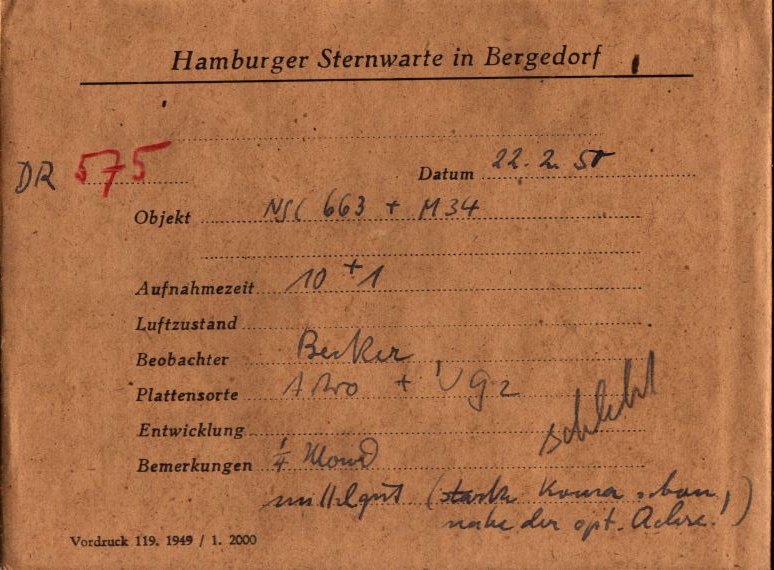 Hamburger Sternwarte in Bergedorf
DR 575
Datum 22. 2. 50
Objekt NGC 663 + M 34
Aufnahmezeit 10 + 1
Luftzustand
Beobachter Becker
Plattensorte Astro + UG2
Entwicklung
schlecht
Bemerkungen ¼ Mond
mittelgut (starke Koma schon
nahe der opt. Achse!)
Vordruck 119. 1949 / 1. 2000